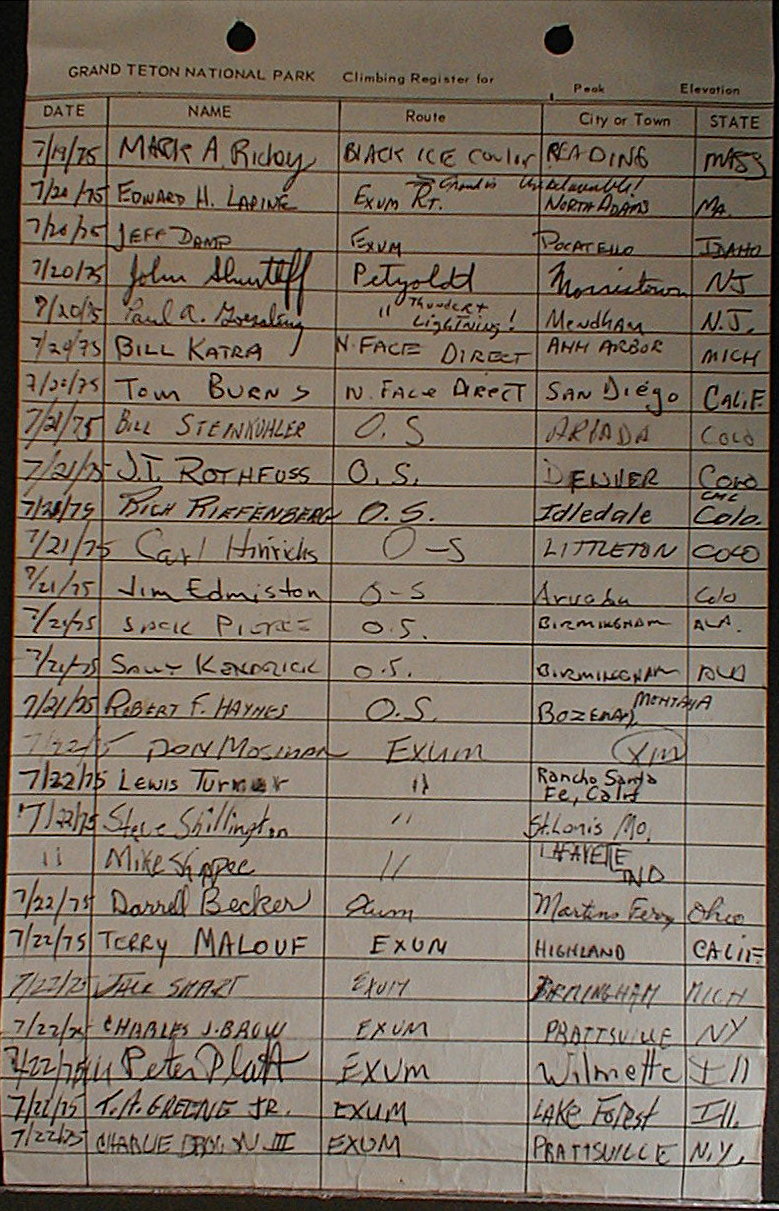 GRAND TETON NATIONAL PARK Climbing Register for Peak Elevation
DATE NAME Route City or Town STATE
7/19/75 MARK A. BLACK ICE READING MASS
7/20/75 EDWARD H. LAPINE EXUM RT. Grand is Unbelievable! NORTH ADAMS MA.
7/20/75 JEFF DAMP EXUM POCATELLO IDAHO
7/20/75 John Shurtleff Petzoldt Morristown NJ
7/20/75 Paul A. " Thunder + Lightning! Mendham N.J.
7/20/75 BILL KATRA N. FACE DIRECT ANN ARBOR MICH
7/20/75 Tom BURNS N. FACE DIRECT SAN Diego CALIF.
7/21/75 BILL STEINKUHLER O.S ARVADA COLO
7/21/75 J.T. ROTHFUSS O.S. DENVER COLO
7/21/75 RICH RIEFENBERG O.S. Idledale CMC Colo.
7/21/75 Carl Hinrichs O-S LITTLETON COLO
7/21/75 Jim Edmiston O-S Arvada Colo
7/21/75 JACK PIERCE O.S. BIRMINGHAM ALA.
7/21/75 KENDRICK O.S. BIRMINGHAM ALA
7/21/75 ROBERT F. HAYNES O.S. BOZEMAN, MONTANA
7/22/75 DON MOSMAN EXUM XM
7/22/75 Lewis Turner " Rancho Santa Fe, Calif
7/22/75 Steve Shillington " St. Louis Mo.
" Mike " LAFAYETTE IND
7/22/75 Darrell Becker Exum Martins Ferry Ohio
7/22/75 TERRY MALOUF EXUM HIGHLAND CALIF
7/22/75 SMART EXUM BIRMINGHAM MICH
7/22/75 CHARLES J. EXUM PRATTSVILLE NY
7/22/75 Peter Platt EXUM Wilmette Ill
7/22/75 T.A. GREENE JR. EXUM LAKE Forest Ill.
7/22/75 CHARLIE III EXUM PRATTSVILLE N.Y.